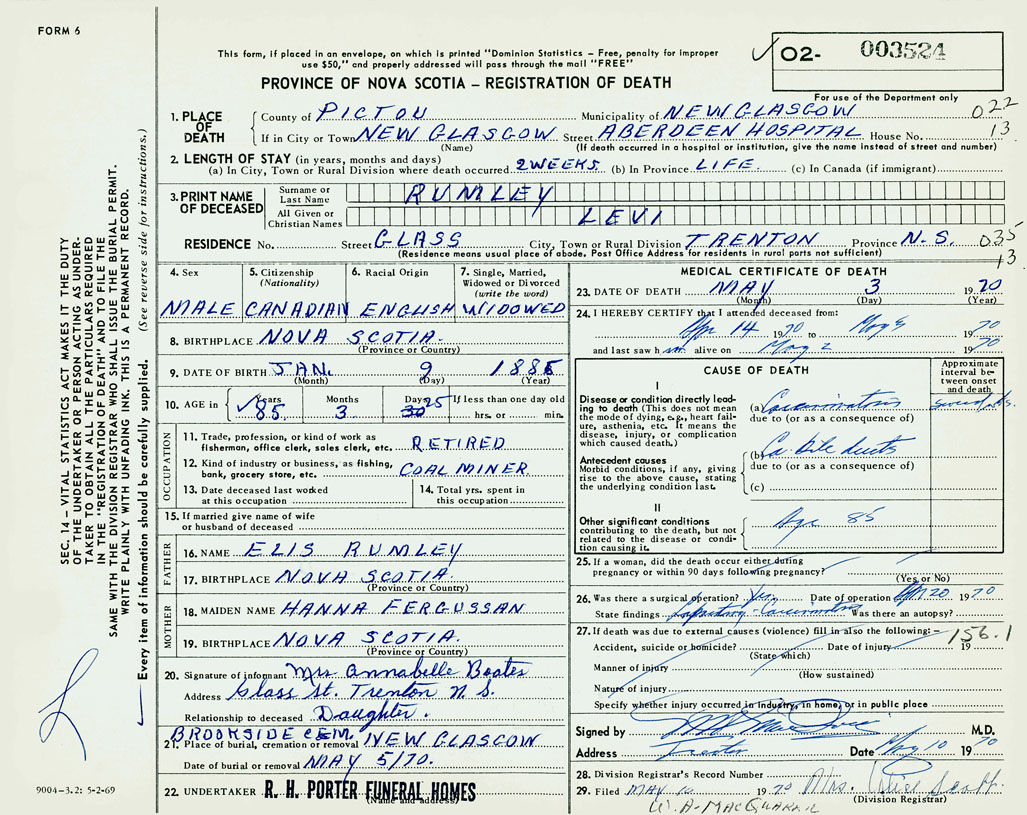 FORM 6
This form, if placed in an envelope, on which is printed "Dominion Statistics – Free, penalty for improper
use $50," and properly addressed will pass through the mail "FREE"
PROVINCE OF NOVA SCOTIA – REGISTRATION OF DEATH
✓ 02- 003524
For use of the Department only
1. PLACE OF DEATH
County of PICTOU Municipality of NEW GLASGOW 022
If in City or Town NEW GLASGOW Street ABERDEEN HOSPITAL House No. 13
(Name) (If death occurred in a hospital or institution, give the name instead of street and number)
2. LENGTH OF STAY (in years, months and days)
(a) In City, Town or Rural Division where death occurred 2 WEEKS (b) In Province LIFE (c) In Canada (if immigrant)
3. PRINT NAME OF DECEASED
Surname or Last Name RUMLEY
All Given or Christian Names LEVI
RESIDENCE No. Street GLASS City, Town or Rural Division TRENTON Province N.S. 035
(Residence means usual place of abode. Post Office Address for residents in rural parts not sufficient) 13
4. Sex
MALE
5. Citizenship (Nationality)
CANADIAN
6. Racial Origin
ENGLISH
7. Single, Married, Widowed or Divorced (write the word)
WIDOWED
8. BIRTHPLACE NOVA SCOTIA
(Province or Country)
9. DATE OF BIRTH JAN. 9 1885
(Month) (Day) (Year)
10. AGE in Years Months Days If less than one day old
✓ 85 3 25 hrs. or min.
OCCUPATION
11. Trade, profession, or kind of work as
fisherman, office clerk, sales clerk, etc. RETIRED
12. Kind of industry or business, as fishing,
bank, grocery store, etc. COAL MINER
13. Date deceased last worked
at this occupation
14. Total yrs. spent in
this occupation
15. If married give name of wife
or husband of deceased
FATHER
16. NAME ELIS RUMLEY
17. BIRTHPLACE NOVA SCOTIA.
(Province or Country)
MOTHER
18. MAIDEN NAME HANNA FERGUSSAN
19. BIRTHPLACE NOVA SCOTIA.
(Province or Country)
20. Signature of informant Mrs Annabelle Boates
Address Glass St. Trenton N.S.
Relationship to deceased Daughter.
BROOKSIDE CEM.
21. Place of burial, cremation or removal NEW GLASGOW
Date of burial or removal MAY 5/70.
22. UNDERTAKER R. H. PORTER FUNERAL HOMES
(Name and address)
MEDICAL CERTIFICATE OF DEATH
23. DATE OF DEATH MAY 3 1970
(Month) (Day) (Year)
24. I HEREBY CERTIFY that I attended deceased from:
Apr 14 1970 to May 1970
and last saw h im alive on May 2 1970
CAUSE OF DEATH
Approximate interval between onset and death
I
Disease or condition directly leading to death (This does not mean the mode of dying, e.g., heart failure, asthenia, etc. It means the disease, injury, or complication which caused death.)
(a) Carcinomatosis
due to (or as a consequence of)
Antecedent causes
Morbid conditions, if any, giving rise to the above cause, stating the underlying condition last.
(b) Ca. Bile ducts
due to (or as a consequence of)
(c)
II
Other significant conditions
contributing to the death, but not related to the disease or condition causing it.
Age 85
25. If a woman, did the death occur either during
pregnancy or within 90 days following pregnancy?
(Yes or No)
26. Was there a surgical operation? Yes Date of operation Apr 20 1970
State findings Laparotomy - Carcinomatosis Was there an autopsy?
27. If death was due to external causes (violence) fill in also the following:– 156.1
Accident, suicide or homicide? Date of injury 19
(State which)
Manner of injury
(How sustained)
Nature of injury
Specify whether injury occurred in industry, in home, or in public place
Signed by M.D.
Address Trenton Date May 10 1970
28. Division Registrar's Record Number
29. Filed MAY 1970 Mrs. Alice Scott.
(Division Registrar)
SEC. 14 – VITAL STATISTICS ACT MAKES IT THE DUTY
OF THE UNDERTAKER OR PERSON ACTING AS UNDER-
TAKER TO OBTAIN ALL THE PARTICULARS REQUIRED
IN THE "REGISTRATION OF DEATH" AND TO FILE THE
SAME WITH THE DIVISION REGISTRAR WHO SHALL ISSUE THE BURIAL PERMIT.
WRITE PLAINLY WITH UNFADING INK. THIS IS A PERMANENT RECORD.
Every item of information should be carefully supplied. (See reverse side for instructions.)
9004–3.2: 5-2-69